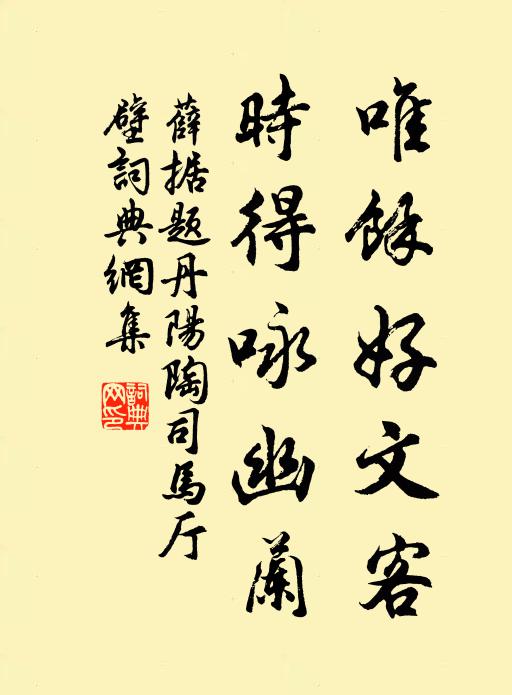 唯餘好文客
時得咏幽蘭
薛据题丹陽陶司馬厅
壁詞典網集
詞典網印